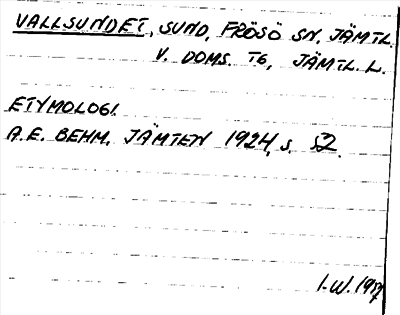 VALLSUNDET, SUND, FRÖSÖ SN, JÄMTL.
V. DOMS. TG, JÄMTL. L.
ETYMOLOGI.
A.E. BEHM, JÄMTEN 1924, s. 52.
I.W. 1987